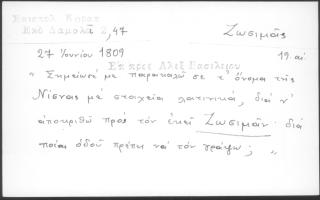 Επιστολ Κοραη
Υπὸ Δαμαλᾶ 2, 47
Ζωσιμᾶς
27 Ἰουνίου 1809
19. αι
Ἐπ πρὸς Ἀλεξ Βασιλειου
" Σημείωσέ με παρακαλῶ σε τ' ὄνομα τῆς
Νίζνας μὲ στοιχεῖα λατινικά, διά ν'
ἀποκριθῶ πρὸς τὸν ἐκεῖ Ζωσιμᾶν· διὰ
ποίας ὁδοῦ πρέπει νὰ τὸν γράψω; "